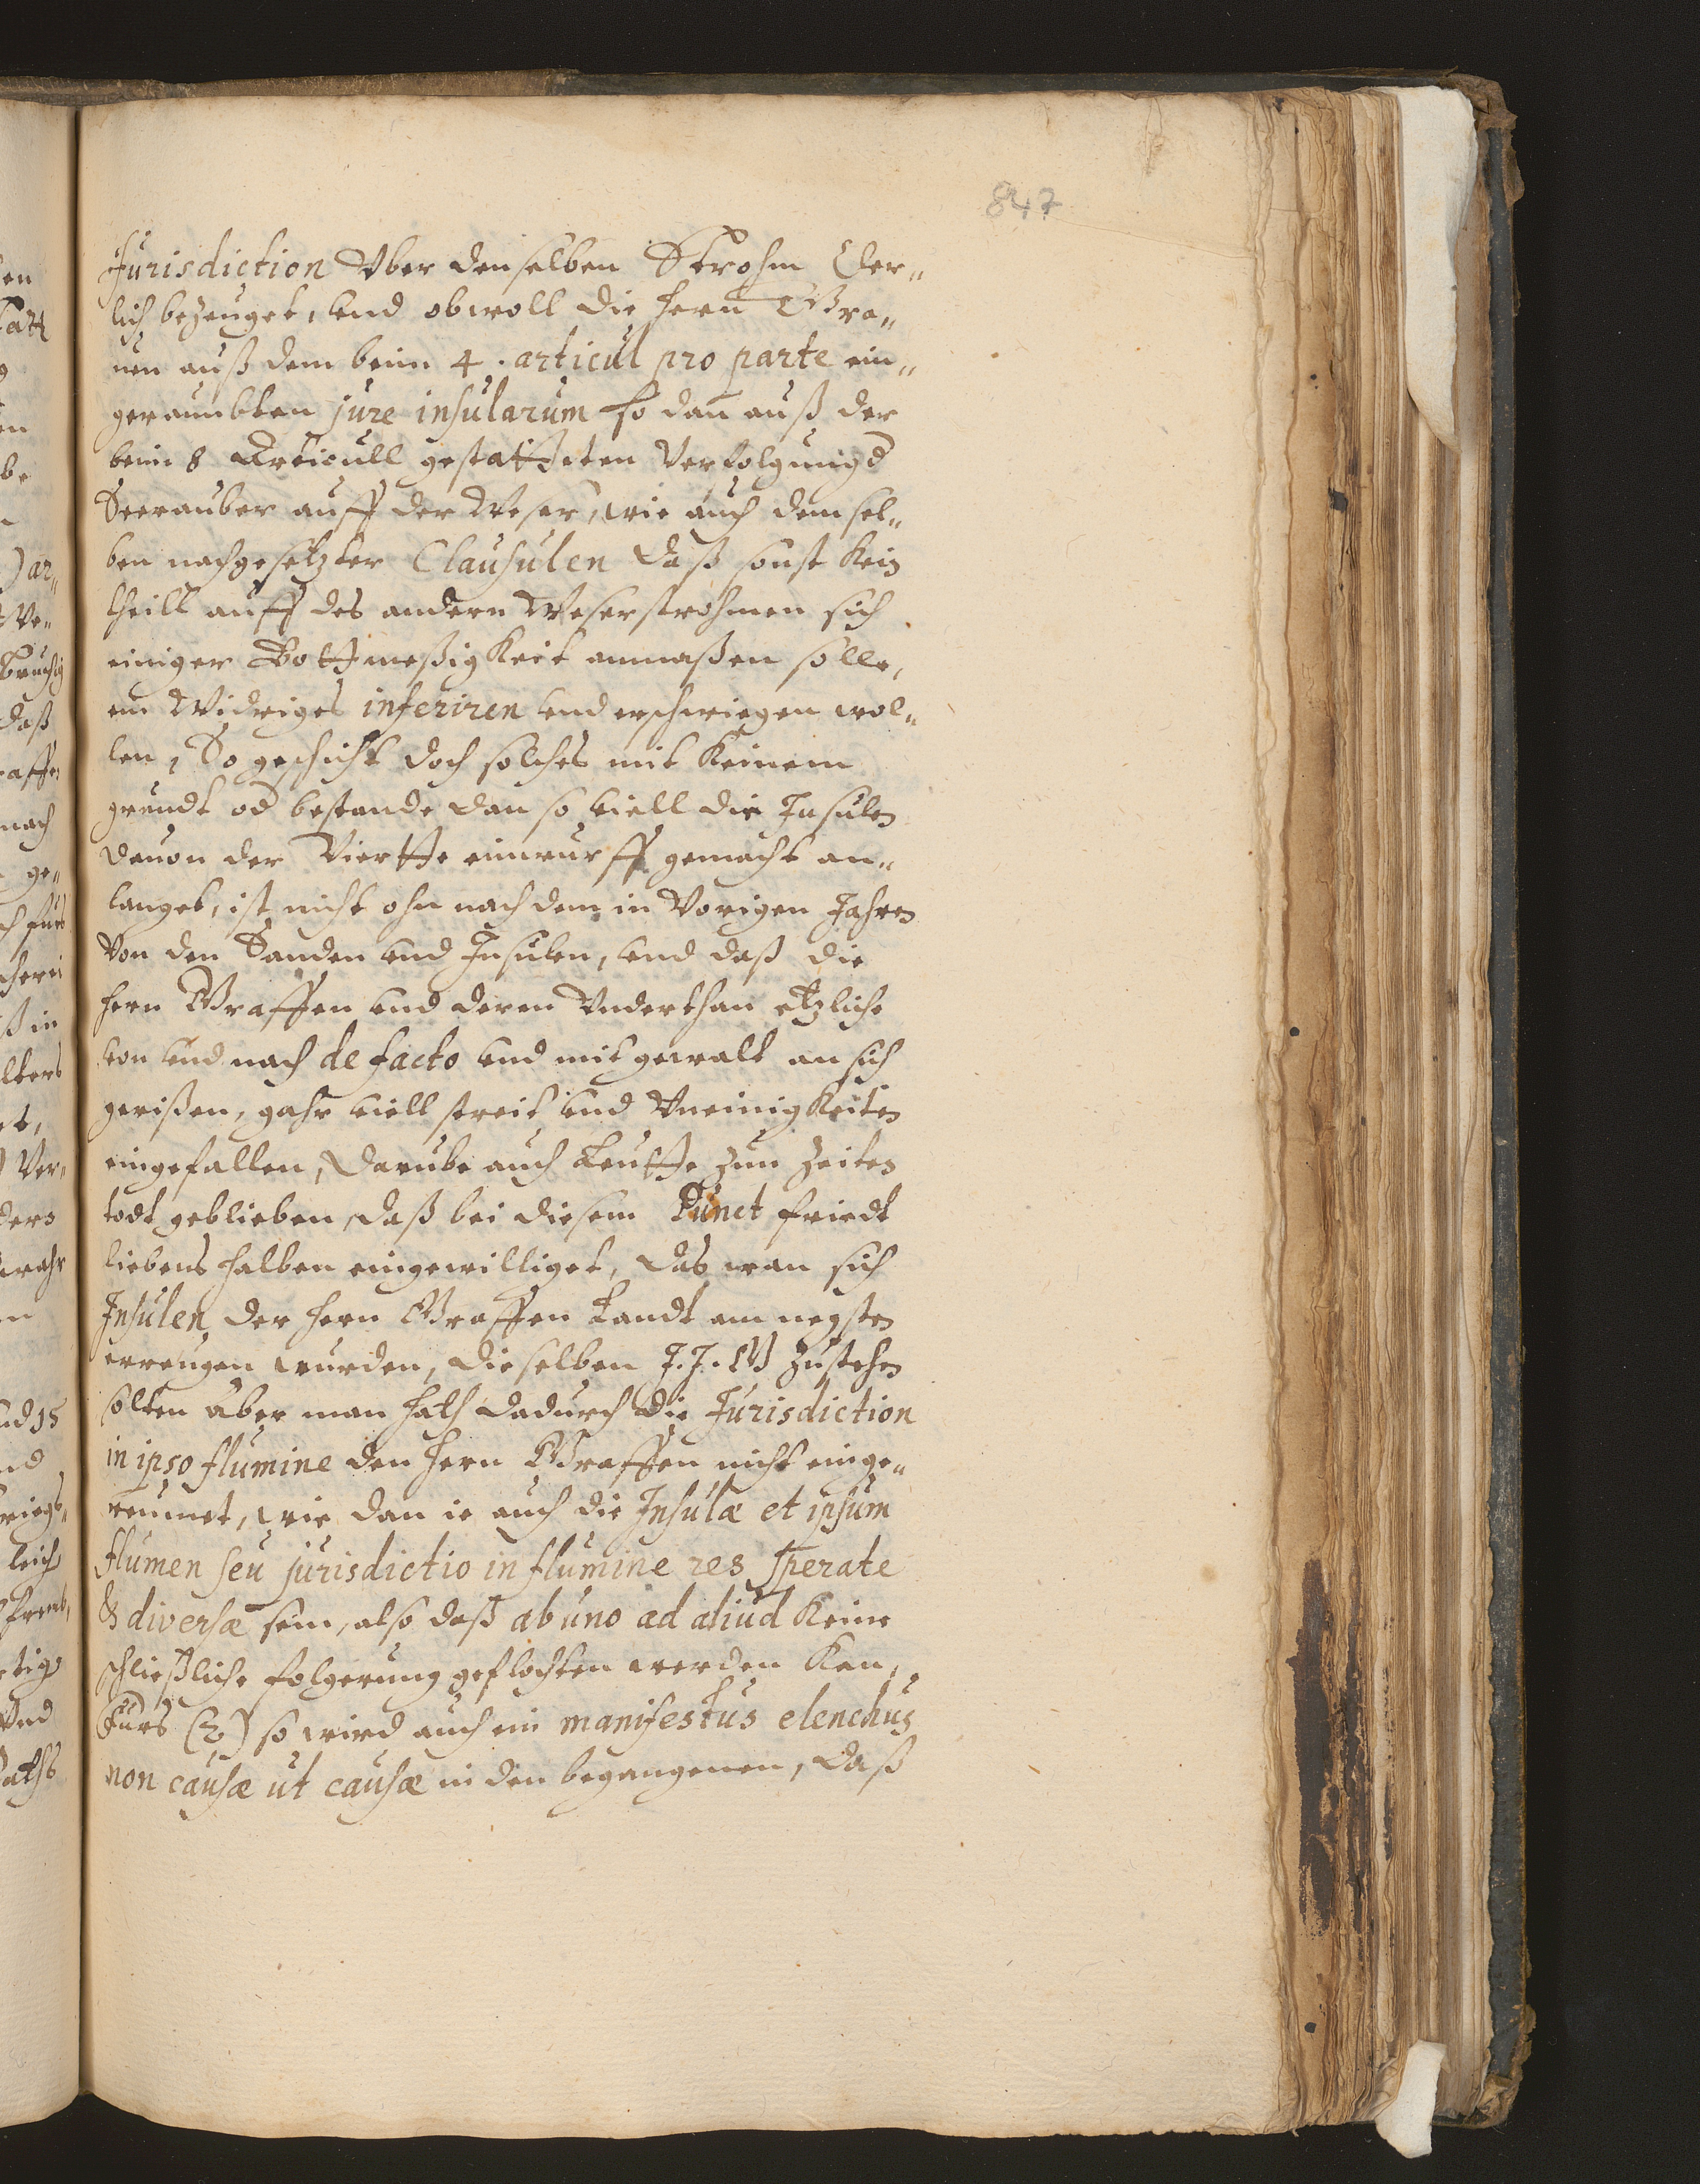 847
Jurisdiction Vber denselben Strohm Cler„
lich bezeuget, vnd obwoll die hern Gra„
uen auß dem beim 4. articul pro parte ein„
geraumbten jure insularum so dan auß der
beim 8 Articull gestatteten Verfolgung d
Seerauber auff der Weser, wie auch demsel„
ben nachgesetzter Clausulen daß sonst kein
theill auff des andern Weserstrohmen sich
einiger Bottmeßigkeit anmaßen solle,
ein Widriges inferiren vnd erzwingen wol„
len, So geschicht doch solches mit keinem
grundt od bestande dan so viell die Insulen
dauon der Viertte einwurff gemacht an„
langet, ist nicht ohn nach dem in Vorigen Jahren
Von den Sanden vnd Insulen, vnd daß die
hern Graffen vnd deren Vnderthan etzliche
von vnd nach de facto vnd mit gewalt an sich
gerißen, gahr viell streit vnd Vneinigkeiten
eingefallen, darube auch Leutte zun Zeiten
todt geblieben, daß bei diesem Punct friedt
liebens halben eingewilliget, das wan sich
Insulen der hern Graffen Landt am negsten
erreugen wurden, dieselben J. J. G zustehen
solten aber man hath dadurch die Jurisdiction
in ipso flumine den hern Graffen nicht einge„
reumet, wie dan ie auch die Insulæ et ipsum
flumen seu jurisdictio in flumine res sperate
& diversæ sein, also daß ab uno ad aliud keine
schließliche folgerung geflochten werden kan,
Furs (2) so wird auch ein manifestus elenchus
non causæ ut causæ in den begangenen, daß